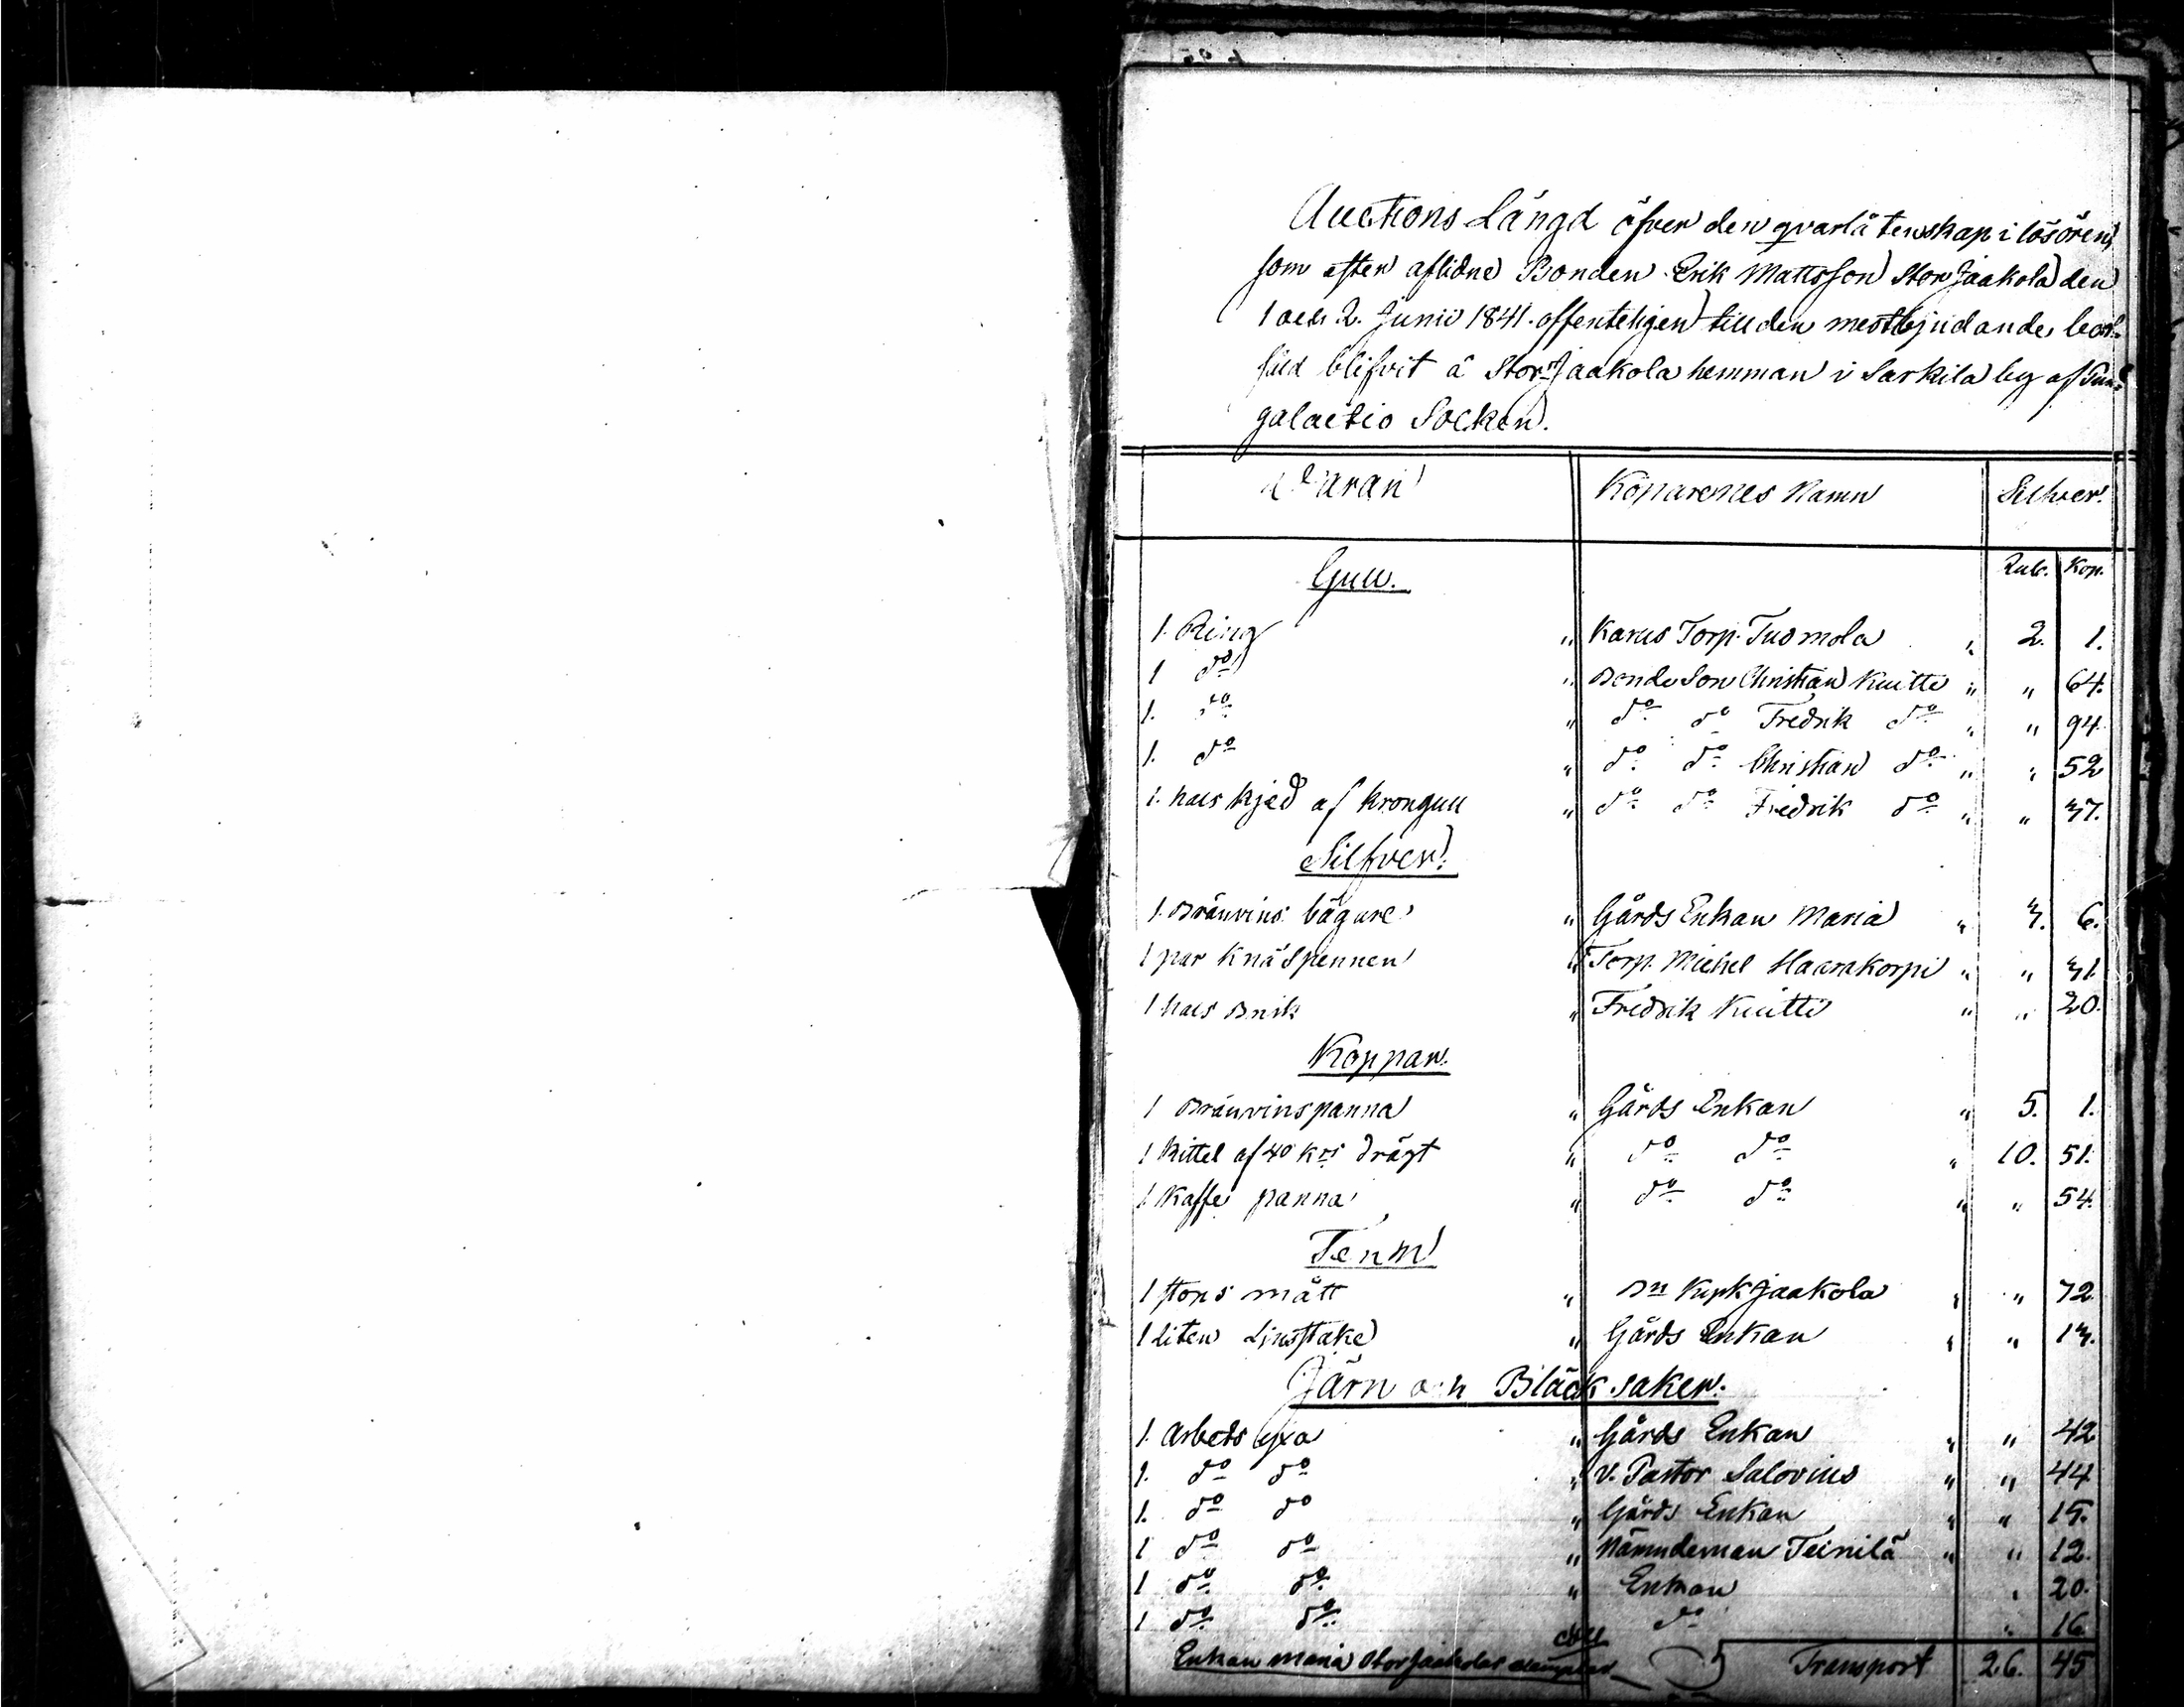 Auctions Längd öfver den qvarlåtenskap i lösören,
som efter aflidne Bonden Erik Mattsson Stor Jaakola den
1 och 2. Junii 1841. offenteligen till den mestbjudande bort-
såld blifvit å Stor Jaakola hemman i Sarkila by af Tun-
galaitio Socken.
Varan Köparenes Namn Silfver.
Rub. Kop.
Gull.
1. Ring " Karus Torp. Tuomola " 2. 1.
1 do " Bonde Son Christian Kuitti " " 64.
1. do " do do Fredrik do " " 94.
1. do " do do Christian do " " 52
1. hals kjed af Krongull " do do Fredrik do " " 37.
Silfver.
1. Bränvins bägare " Gårds Enkan Maria " 3. 6.
1 par Knä Spennen " Torp. Michel Haarakorpi " " 31.
1 hals Brisk " Fredrik Kuitti " " 20.
Koppar.
1 Bränvinspanna " Gårds Enkan " 5. 1.
1 Kittel af 40 Krs drägt " do do " 10. 51.
1 Kaffe panna " do do " " 54.
Tenn
1 stops mått " Bn Kyrk Jaakola " " 72
1 Liten Ljusstake " Gårds Enkan " " 13.
Järn och Bläck saker.
1. Arbets yxa " Gårds Enkan " " 42
1. do do " V. Pastor Salovius " " 44
1. do do " Gårds Enkan " " 15.
1 do do " Nämndeman Teinilä " " 12.
1 do do " Enkan " 20.
1 do do do " 16
Enkan Maria Stor Jaakolas Transport 26. 45